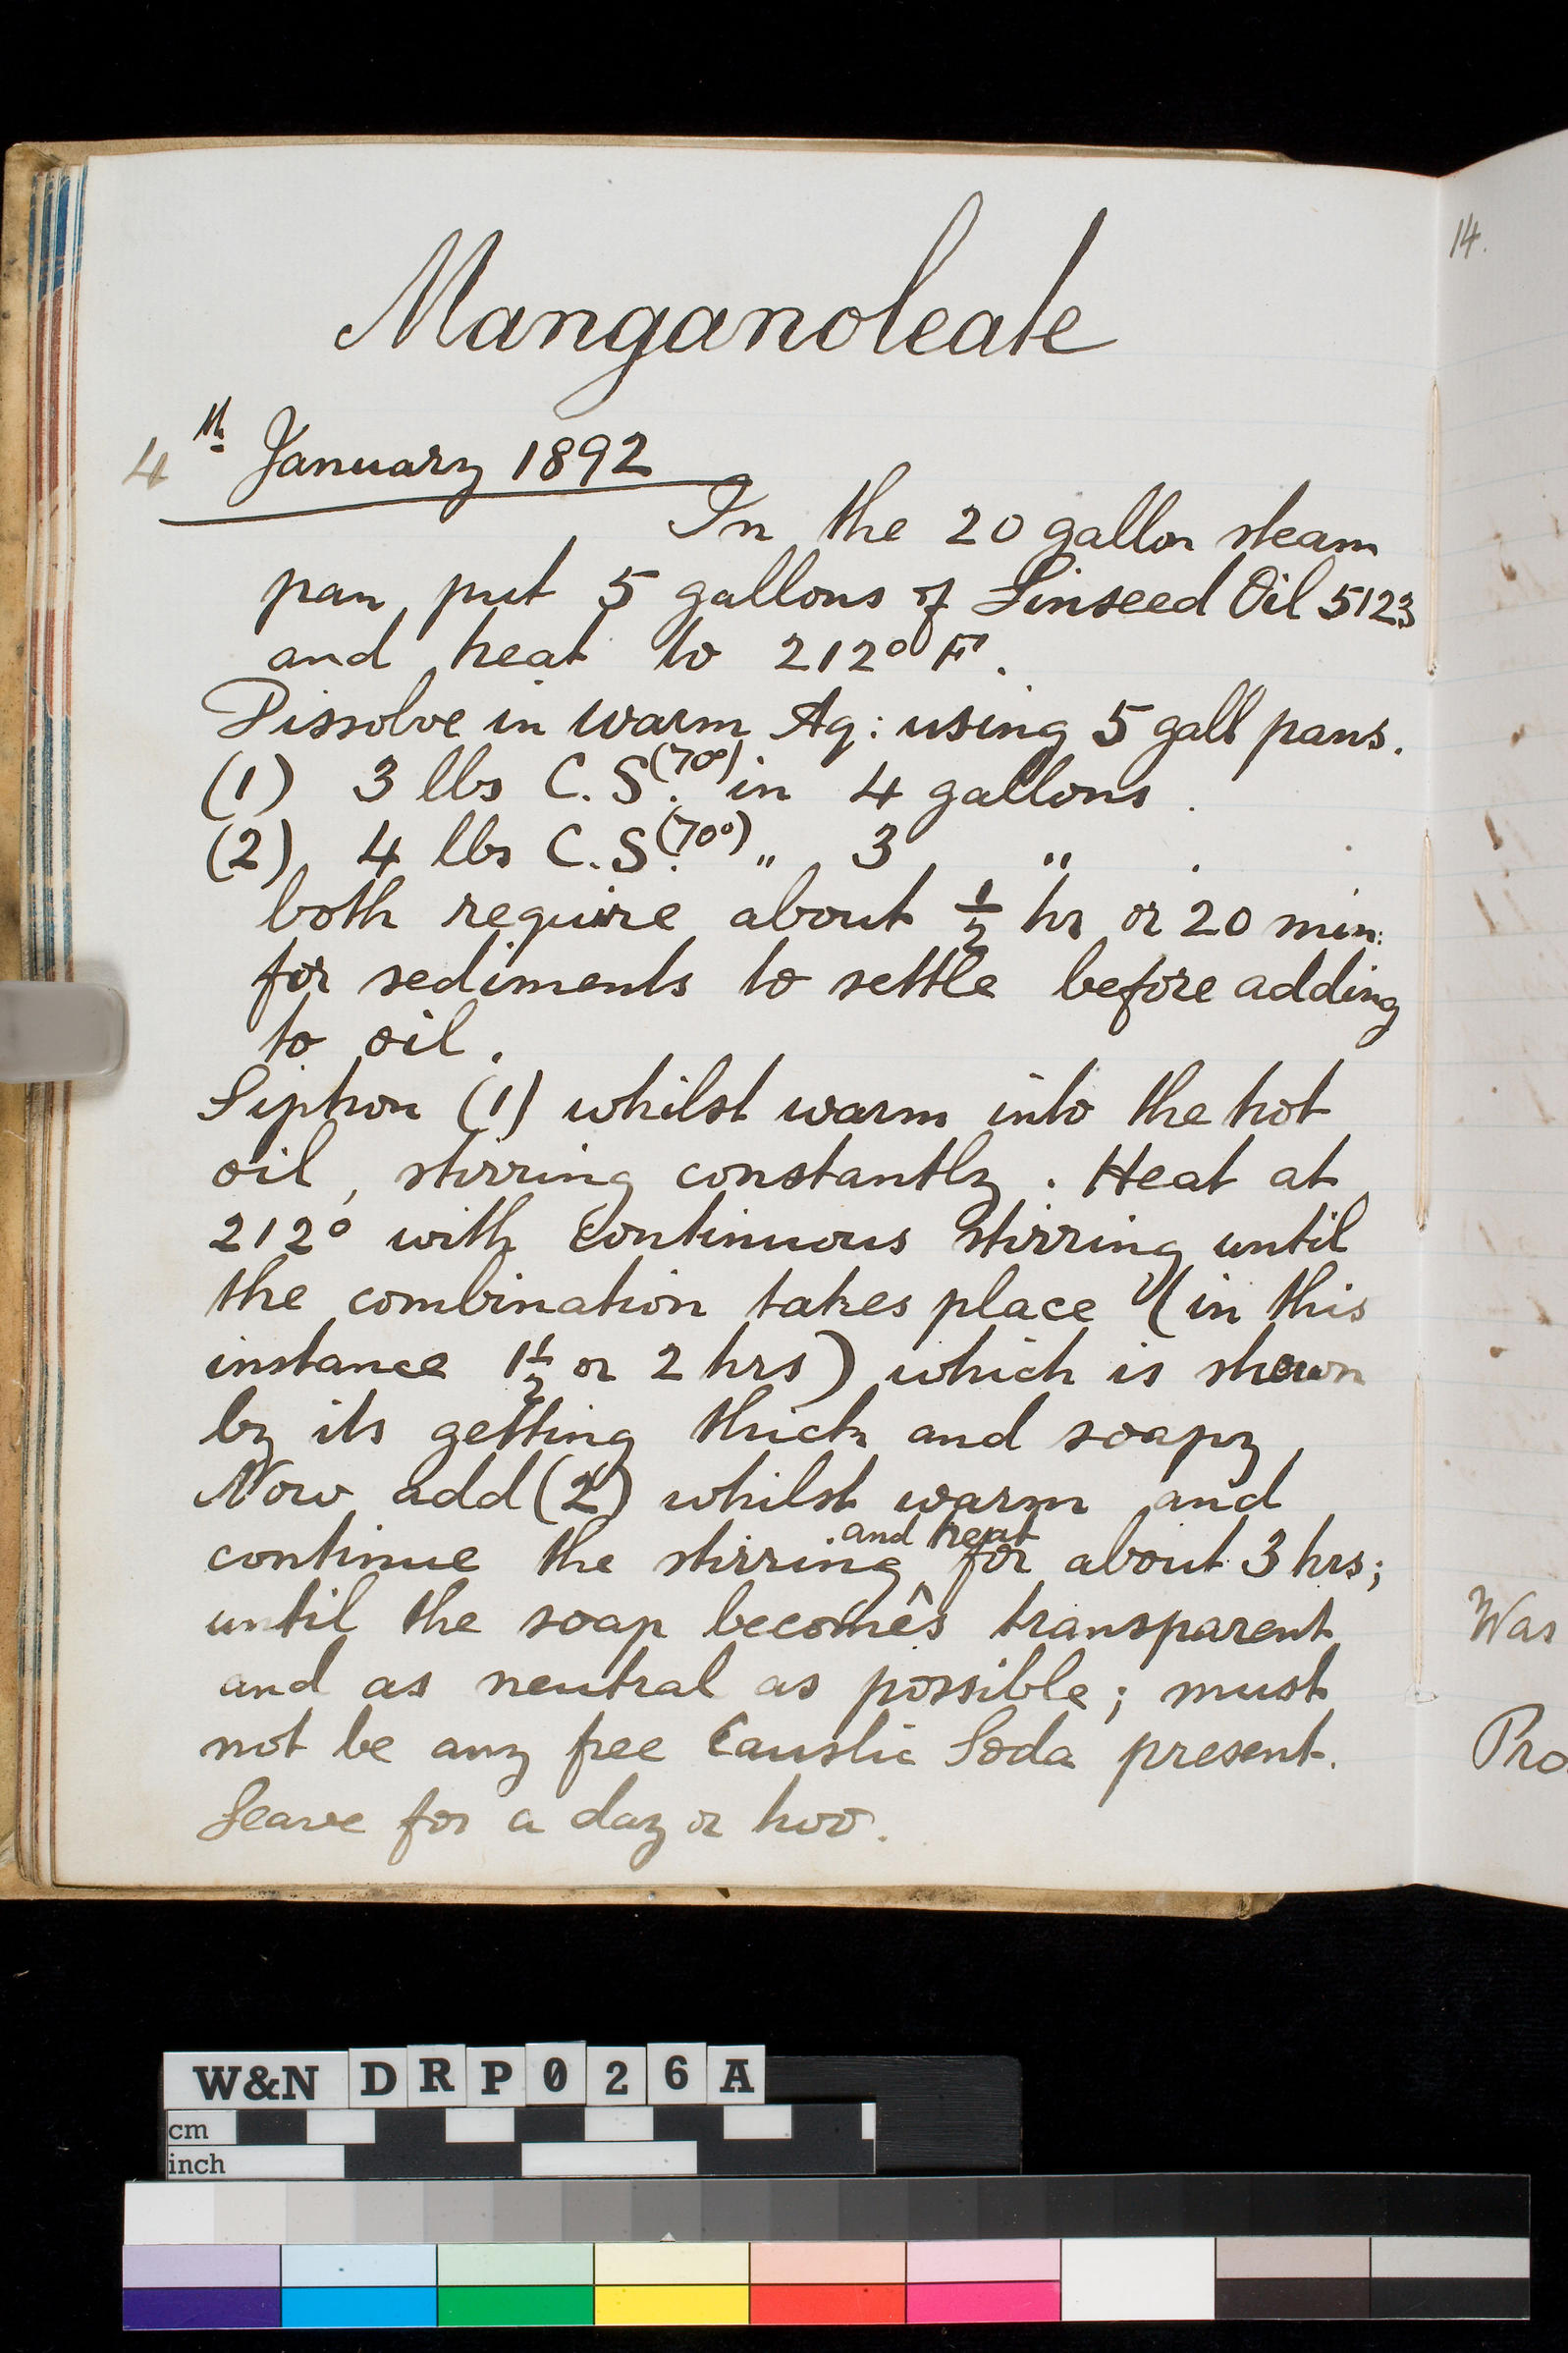 Manganoleate
4th January 1892
In the 20 gallon steam
pan put 5 gallons of Linseed Oil 5123
and heat to 212° F.
Dissolve in warm Aq: using 5 gall pans.
(1) 3 lbs C.S.(70°) in 4 gallons.
(2) 4 lbs C.S.(70°) " 3 " .
both require about ½ hr or 20 min:
for sediments to settle before adding
to oil.
Siphon (1) whilst warm into the hot
oil, stirring constantly. Heat at
212° with continuous stirring until
the combination takes place (in this
instance 1½ or 2 hrs) which is shewn
by its getting thick and soapy
Now add (2) whilst warm and
continue the stirring and heat for about 3 hrs;
until the soap becomes transparent
and as neutral as possible; must
not be any free Caustic Soda present.
Leave for a day or two.
14.
Was
Pro
W&N DRP026A
cm
inch